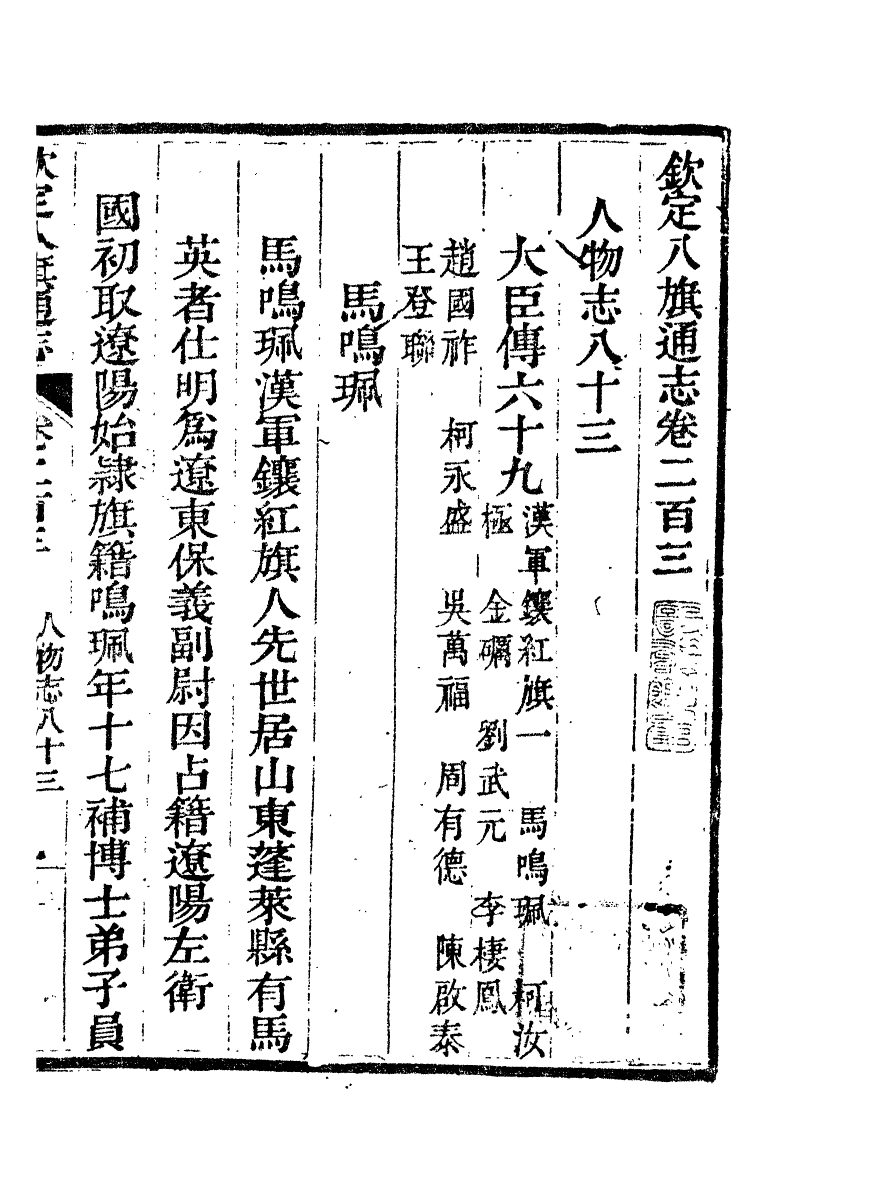 欽定八旗通志卷二百三
人物志八十三
大臣傳六十九
漢軍鑲紅旗一　馬鳴珮　柯汝
極　金礪　劉武元　李棲鳳
趙國祚　柯永盛　吳萬福　周有德　陳啟泰
王登聯
馬鳴珮
馬鳴珮漢軍鑲紅旗人先世居山東蓬萊縣有馬
英者仕明爲遼東保義副尉因占籍遼陽左衛
國初取遼陽始隸旗籍鳴珮年十七補博士弟子員
欽定八旗通志　卷二百三　人物志八十三　一